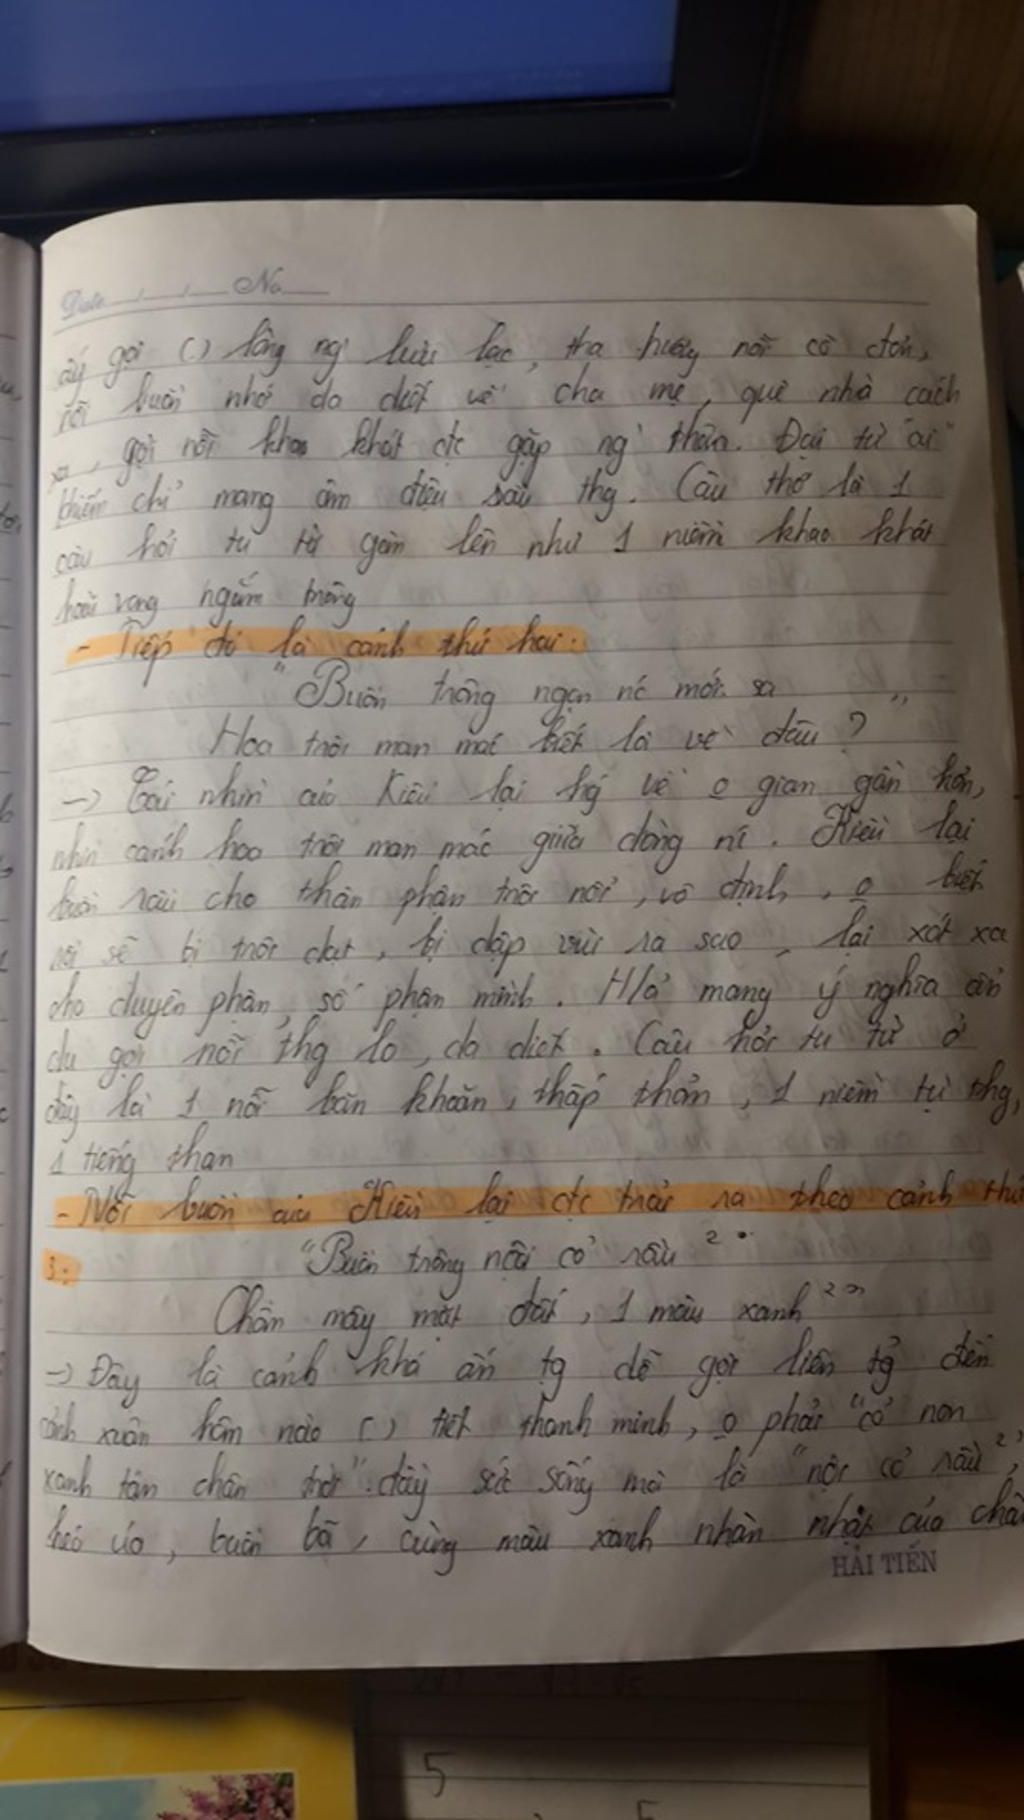 Date / / No
ấy gợi ( ) lòng ng' lưu lạc, tha hương nỗi cô đơn,
nỗi buồn nhớ da diết về cha mẹ, quê nhà cách
xa, gợi nỗi khao khát đc gặp ng' thân. Đại từ "ai"
phiếm chỉ mang âm điệu sầu thg. Câu thơ là 1
câu hỏi tu từ gam lên như 1 niềm khao khát
hoài vọng ngắm trông
- Tiếp đó là cảnh thứ hai:
"Buồn trông ngọn nc mới sa
Hoa trôi man mác biết là về đâu?"
-> Cái nhìn của Kiều lại hg về o gian gần hơn,
nhìn cánh hoa trôi man mác giữa dòng nc. Kiều lại
buồn rầu cho thân phận trôi nổi, vô định, o biết
rồi sẽ bị trôi dạt, bị dập vùi ra sao, lại xót xa
cho duyên phận, số phận mình. H/ả mang ý nghĩa ẩn
dụ gợi nỗi thg lo, da diết. Câu hỏi tu từ ở
đây là 1 nỗi băn khoăn, thấp thỏm, 1 niềm tự thg,
1 tiếng than
- Nỗi buồn của Kiều lại đc trải ra theo cảnh thứ
3:
"Buồn trông nội cỏ rầu 2
Chân mây mặt đất, 1 màu xanh 2"
-> Đây là cảnh khá ấn tg dễ gợi liên tg đến
cảnh xuân hôm nào ( ) tiết thanh minh, o phải "cỏ non
xanh tận chân trời" đầy sức sống mà là "nội cỏ rầu 2",
héo úa, buồn bã, cùng màu xanh nhàn nhạt của chân
HẢI TIẾN
5
5